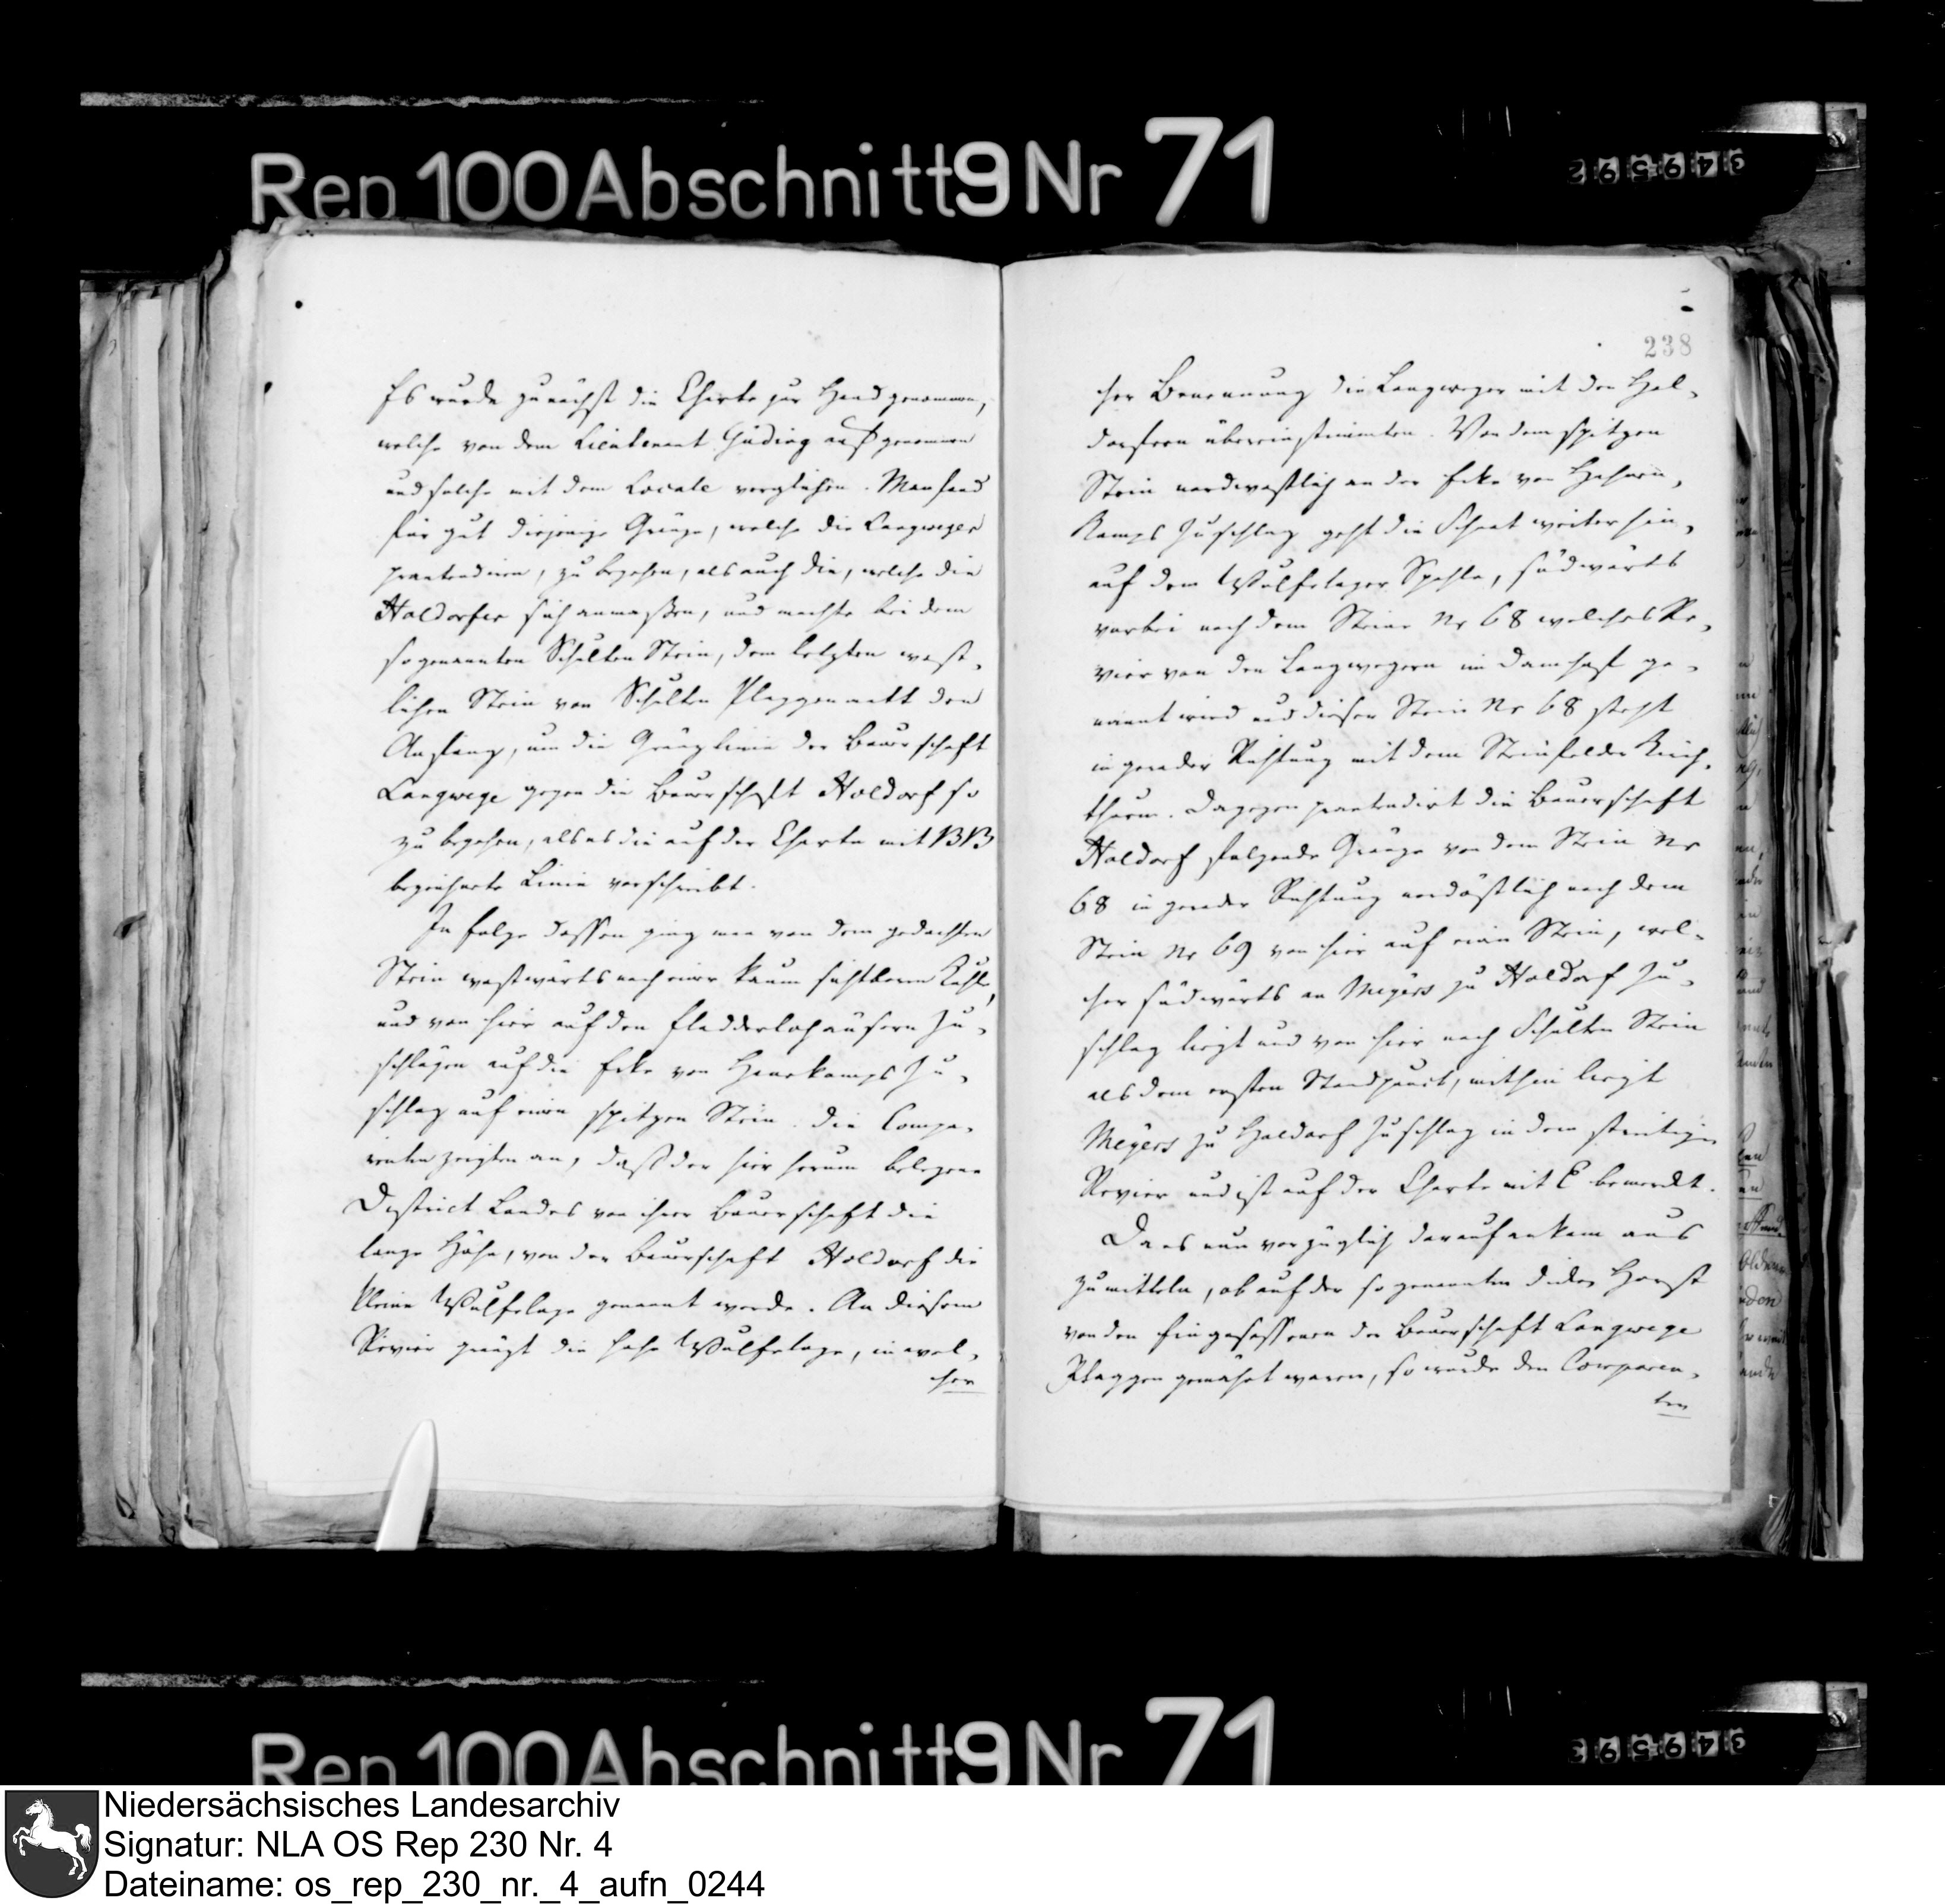 Rep 100 Abschnitt 9 Nr 71
349592
Es wurde zunächst die Charte zur Hand genommen,
welche von dem Lieutenant Güding aufgenommen
und solche mit dem Locale verglichen. Man fand
für gut diejenige Gränze, welche die Langweger
praetendiren, zu begehen, als auch die, welche die
Holdorfer sich anmaßen, und machte bei dem
sogenannten Schulten Stein, dem letzten west-
lichen Stein von Schulten Plaggenmatt den
Anfang, um die Gränzlinie der Bauerschaft
Langwege gegen die Bauerschaft Holdorf so
zu begehen, als es die auf der Charte mit BB
bezeichnete Linie vorschreibt.
In folge dessen ging man von dem gedachten
Stein westwärts nach einer kaum sichtbaren Kuhle,
und von hier auf den Fladderlohausern Zu-
schlägen auf die Ecke von Hanekamps Zu-
schlag auf einen spitzen Stein. Die Compa-
renten zeigten an, daß der hier herum belegene
District Landes von ihrer Bauerschaft die
lange Höhe, von der Bauerschaft Holdorf die
kleine Wulfelage genannt werde. An diesem
Revier gränzt die hohe Wulfelage, in wel-
cher
238
cher Benennung die Langweger mit den Hol-
dorfern übereinstimmten. Von dem spitzen
Stein nordwestlich an der Ecke von Hahnen-
kamps Zuschlag geht die Schnat weiter hin-
auf dem Wulfelager Spehle, südwärts
vorbei nach dem Steine Nr 68 welches Re-
vier von den Langwegern im Damhast ge-
nannt wird und dieser Stein Nr 68 steht
in gerader Richtung mit dem Steinfelder Kirch-
thurm. Dagegen praetendirt die Bauerschaft
Holdorf folgende Gränze von dem Stein Nr
68 in gerader Richtung nordöstlich nach dem
Stein Nr 69 von hier auf einen Stein, wel-
cher südwärts an Meyers zu Holdorf Zu-
schlag liegt und von hier nach Schulten Stein
als dem ersten Standpunct, mithin liegt
Meyers zu Holdorf Zuschlag in dem streitigen
Revier und ist auf der Charte mit C bemerckt.
Da es nun vorzüglich darauf ankam aus
zumitteln, ob auf der so genannten dicken Horst
von den Eingesessenen der Bauerschaft Langwege
Plaggen gemähet waren, so wurde den Comparen-
ten
Rep 100 Abschnitt 9 Nr 71
349593
Niedersächsisches Landesarchiv
Signatur: NLA OS Rep 230 Nr. 4
Dateiname: os_rep_230_nr._4_aufn_0244